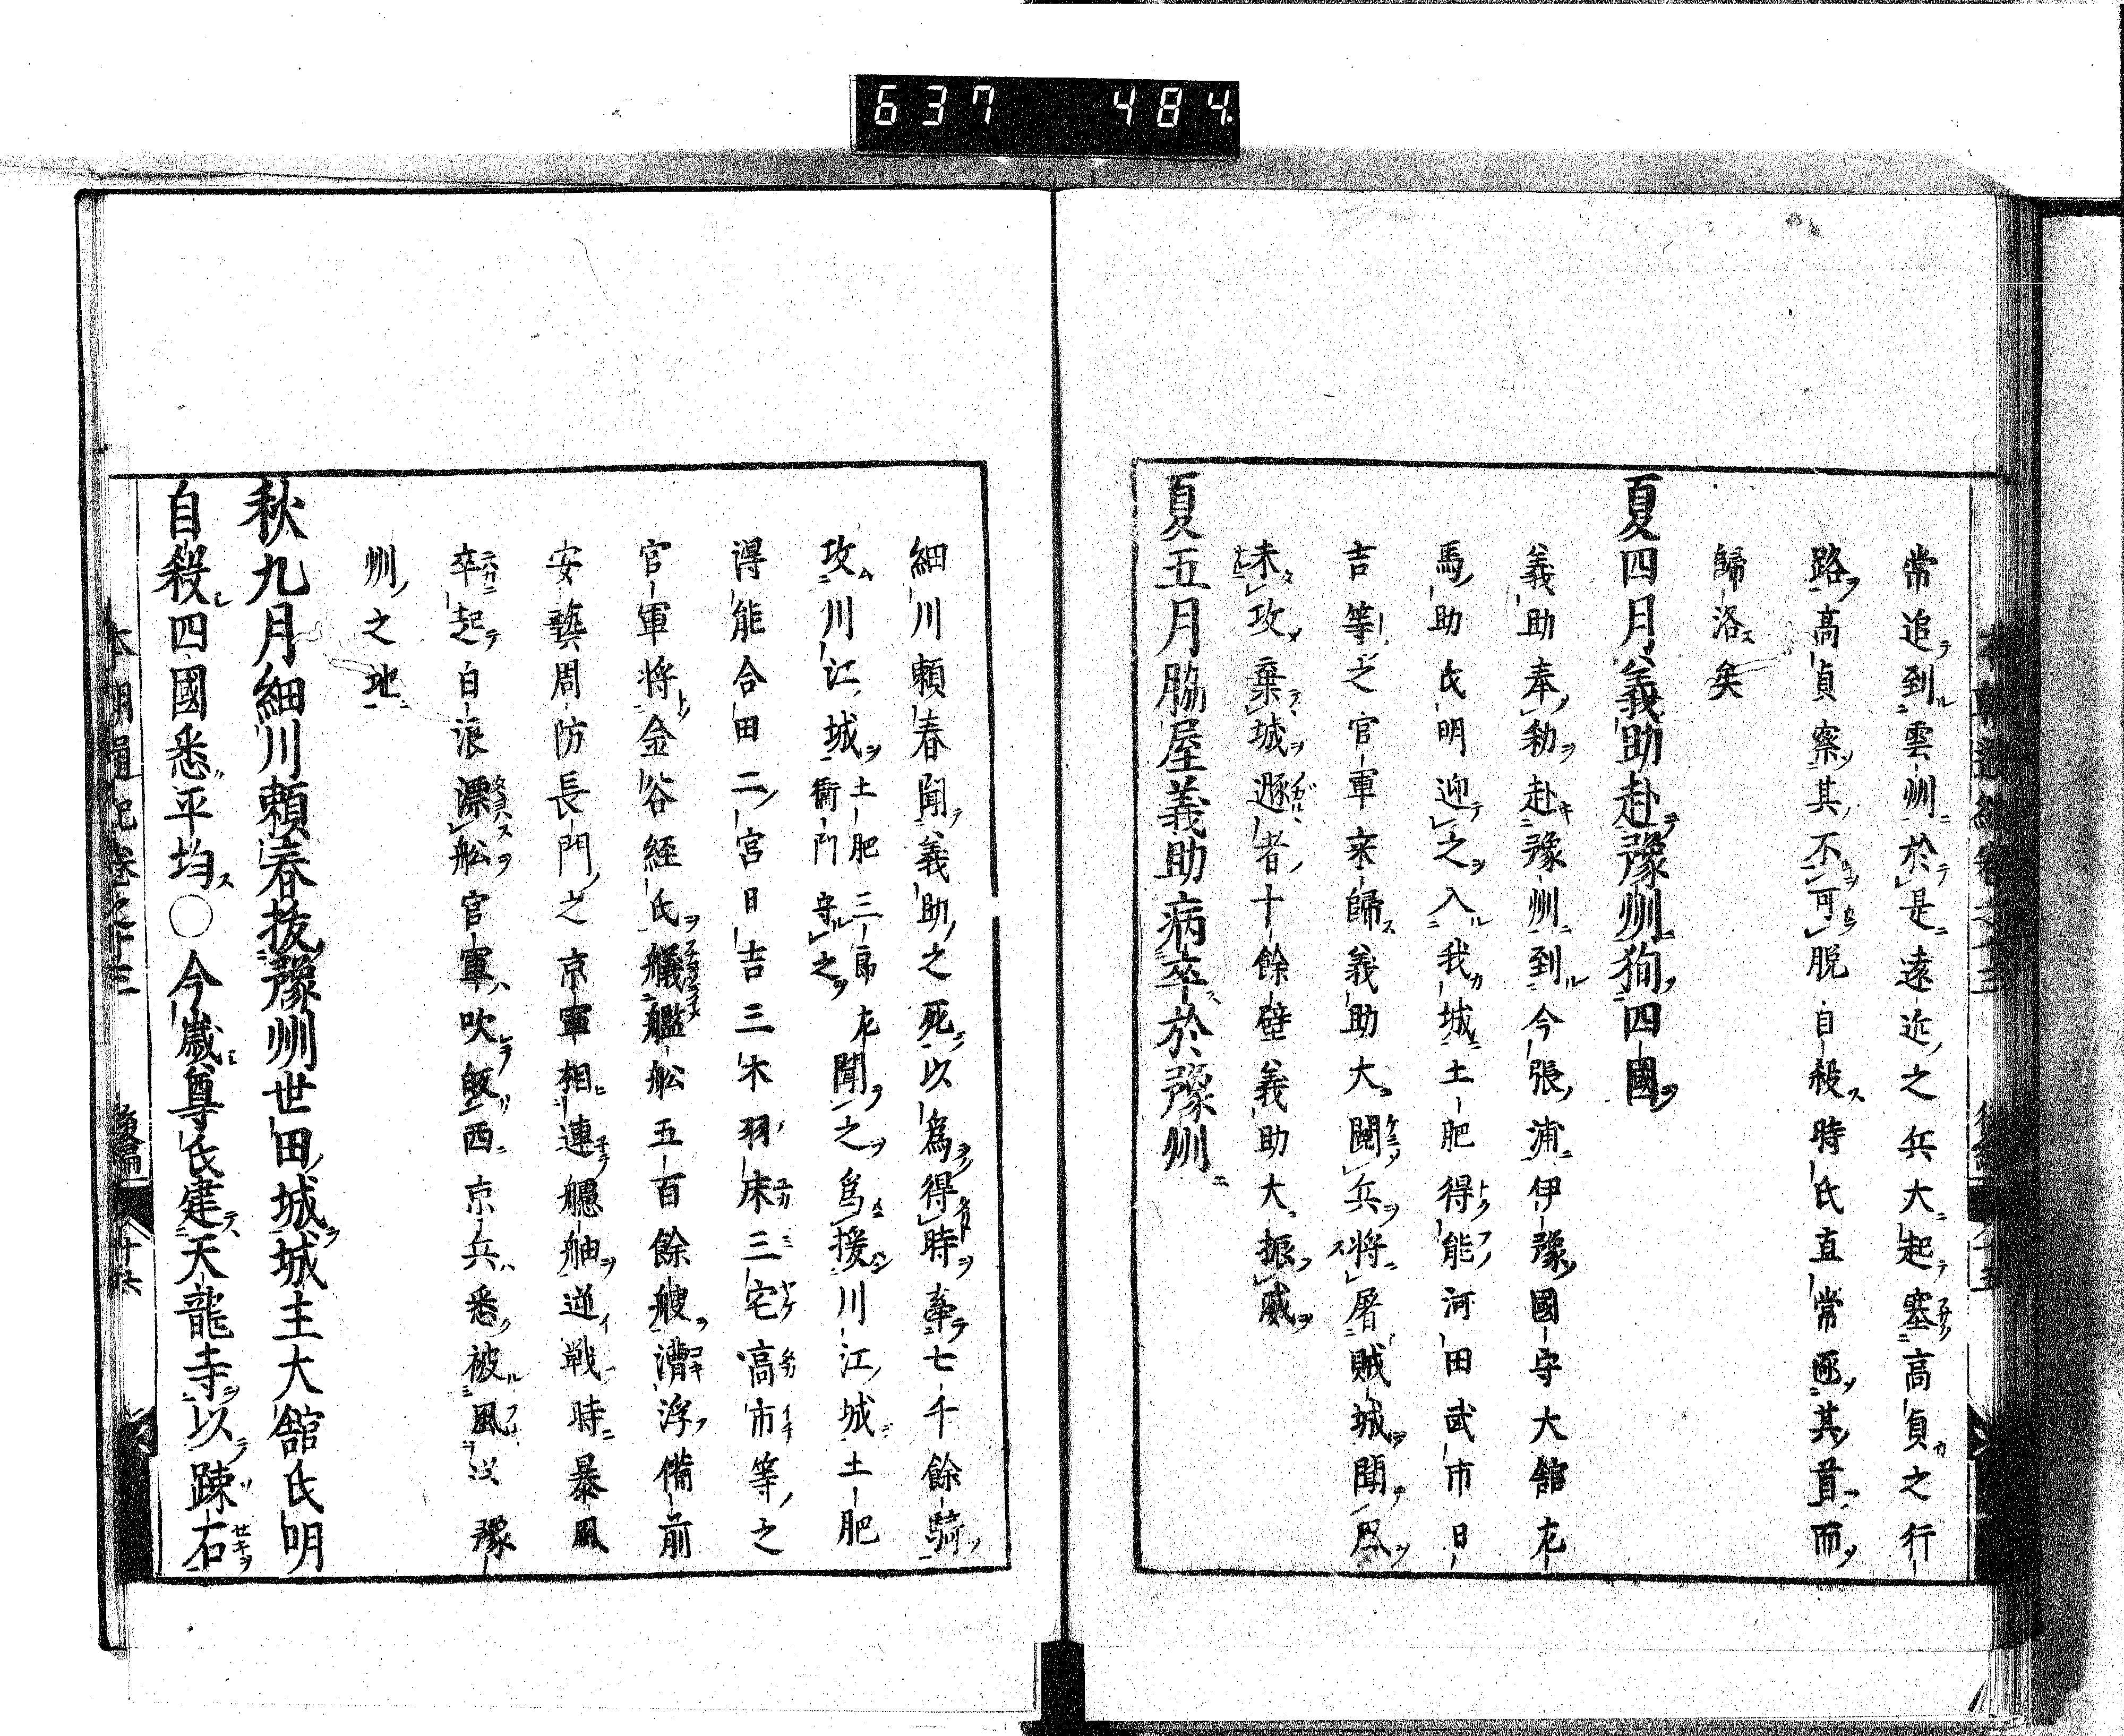 637 484
常追到雲州於是遠近之兵大起塞高貞之行
路高貞察其不可脱自殺時氏直常函其首而
歸洛矣
夏四月義助赴豫州狥四國
義助奉勅赴豫州到今張浦伊豫國守大舘左
馬助氏明迎之入我城土肥得能河田武市日
吉等之官軍来歸義助大閲兵将屠賊城聞風
未攻棄城遯者十餘壁義助大振威
夏五月脇屋義助病卒於豫州
細川頼春聞義助之死以為得時牽七千餘騎
攻川江城土肥三郎左衞門守之聞之為援川江城土肥
得能合田二宮日吉三木羽床三宅高市等之
官軍将金谷経氏艤艦舩五百餘艘漕浮備前
安藝周防長門之京軍相連艫舳逆戦時暴風
卒起白浪漂舩官軍吹皈西京兵悉被風以豫
州之地
秋九月細川頼春抜豫州世田城城主大舘氏明
自殺四國悉平均○今歳尊氏建天龍寺以踈石
本朝通紀巻之十三 後編 十六